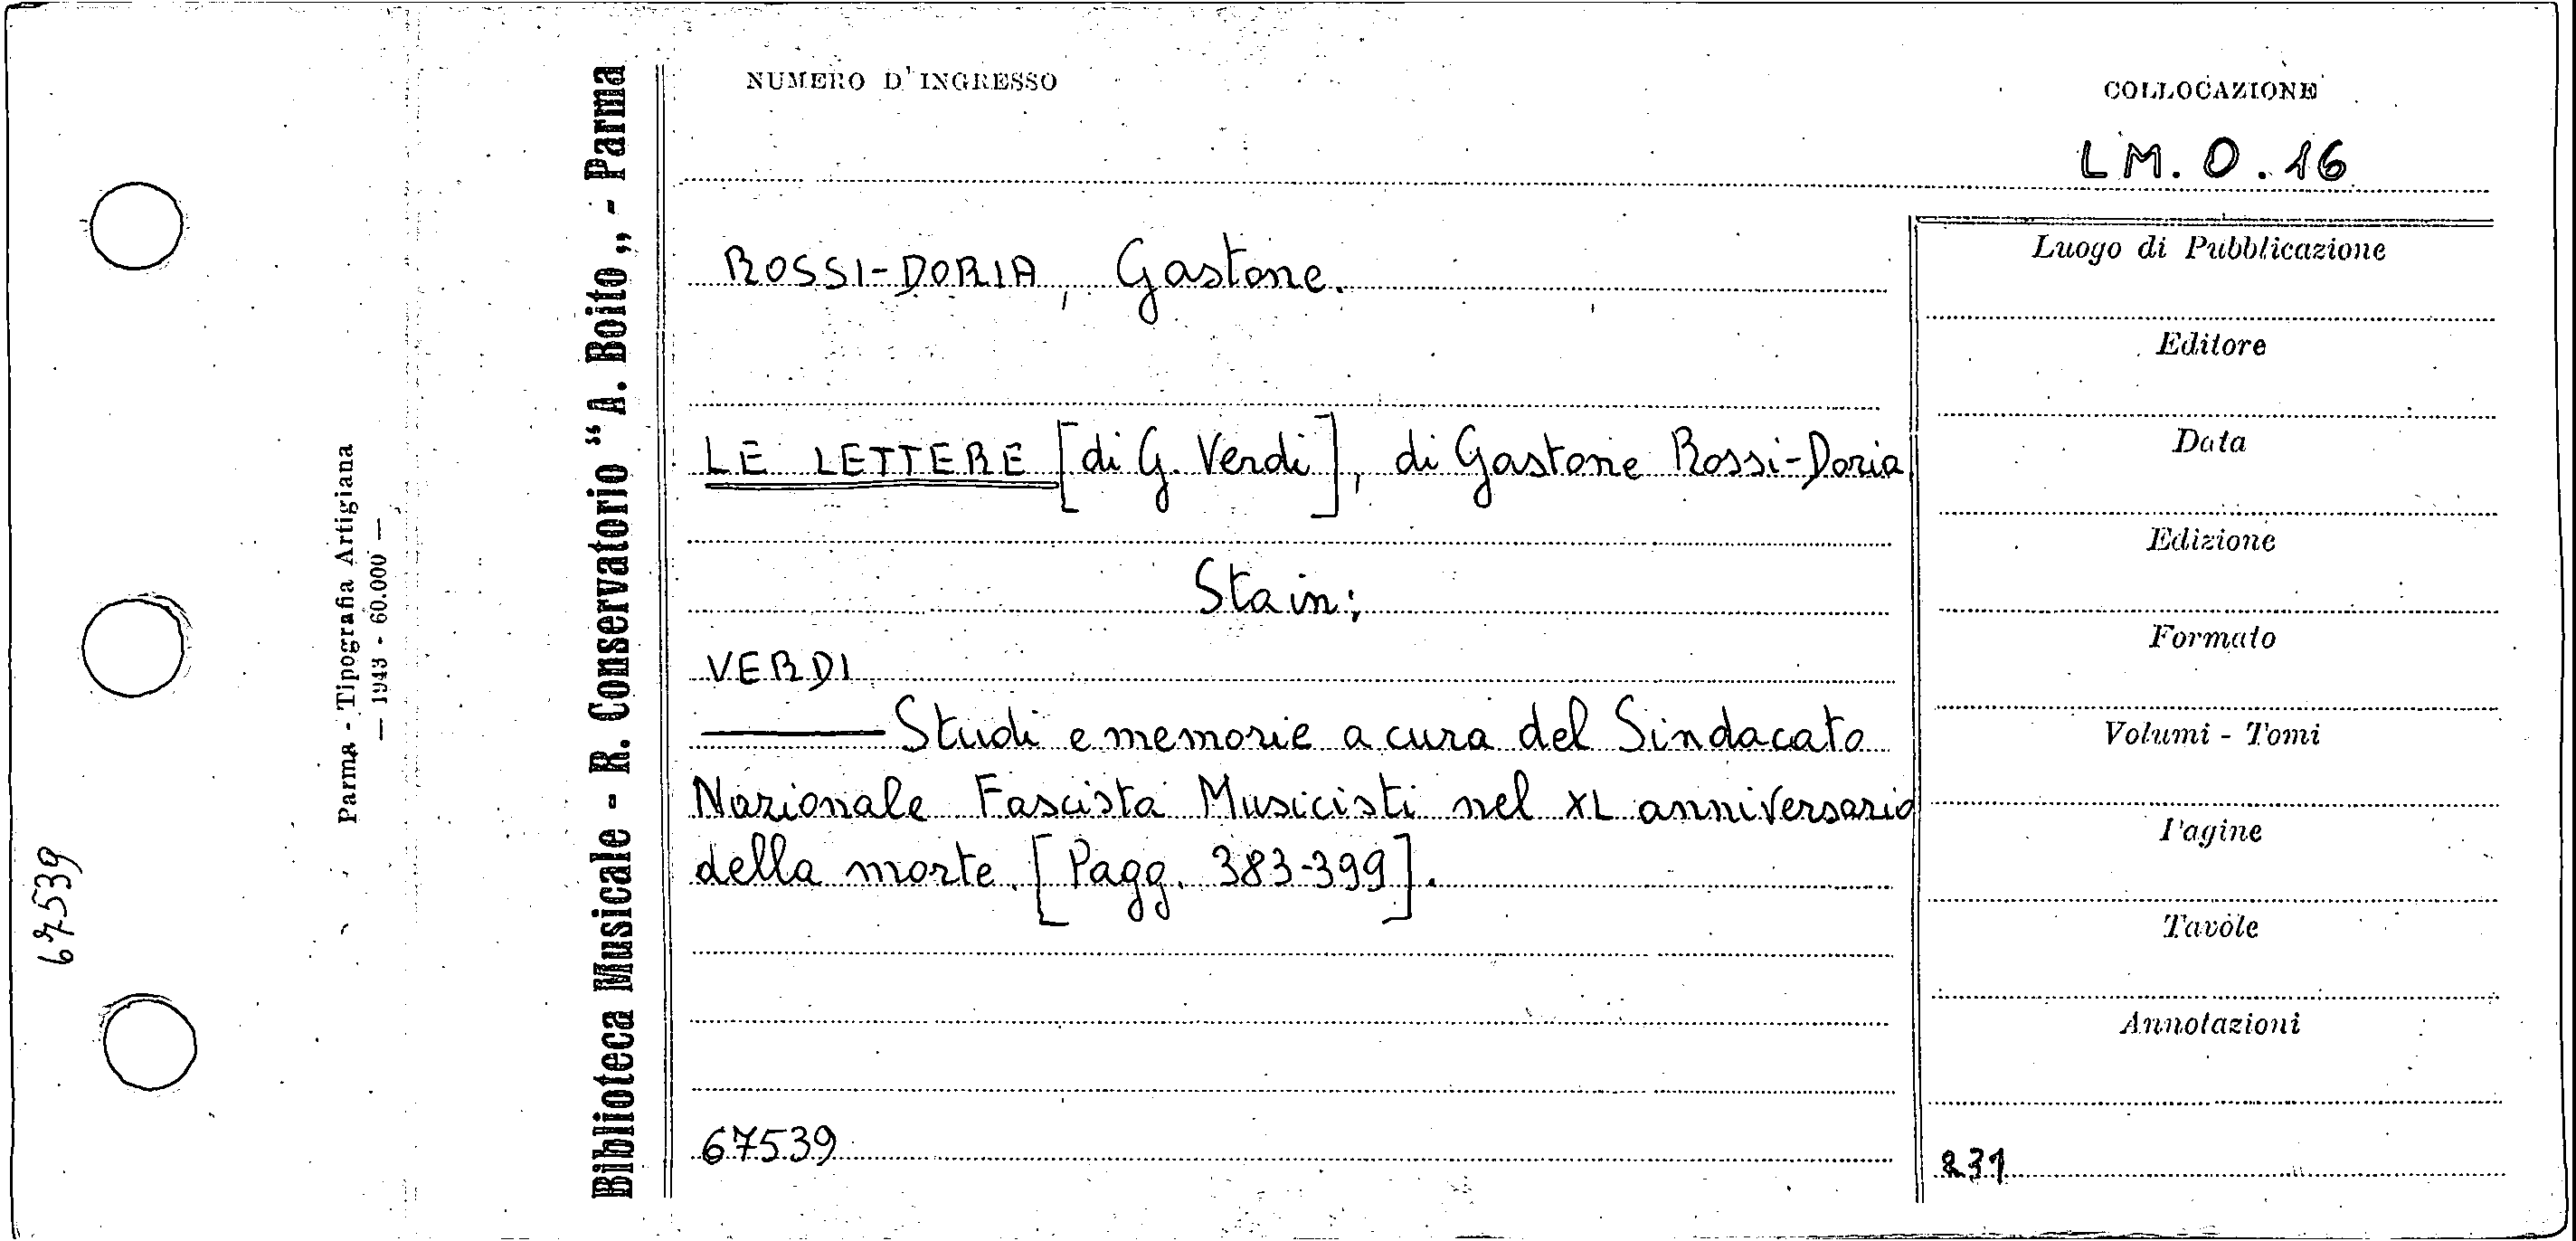 67539
Parma - Tipografia Artigiana
— 1943 - 60.000 —
Biblioteca Musicale - R. Conservatorio "A. Boito„ - Parma
NUMERO D'INGRESSO
COLLOCAZIONE
LM. O. 16
ROSSI-DORIA, Gastone.
LE LETTERE [di G. Verdi], di Gastone Rossi-Doria.
Sta in:
VERDI
——— Studi e memorie a cura del Sindacato
Nazionale Fascista Musicisti nel XL anniversario
della morte. [Pagg. 383-399].
67539
Luogo di Pubblicazione
Editore
Data
Edizione
Formato
Volumi - Tomi
Pagine
Tavole
Annotazioni
231